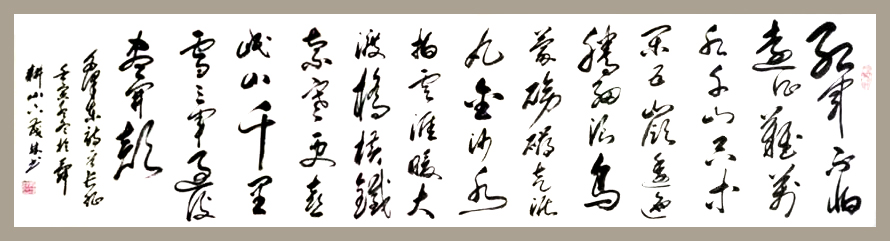 红军不怕
遠征難萬
水千山只等
闲五嶺逶迤
腾细浪乌
蒙磅礴走泥
丸金沙水
拍云崖暖大
渡橋横鐵
索寒更喜
岷山千里
雪三军过後
尽开颜
毛澤东诗长征
壬寅
耕山茂林书